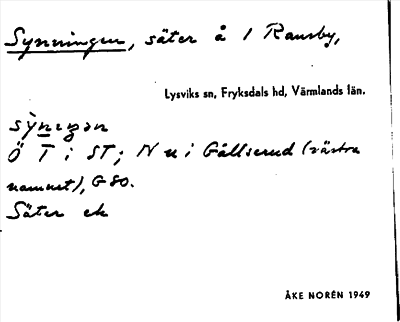 Synningen, säter å 1 Ransby,
Lysviks sn, Fryksdals hd, Värmlands län.
sỳnegan
Ö T i ST; N u i Gållserud (västra
namnet), G 80.
Säter ek
ÅKE NORÉN 1949